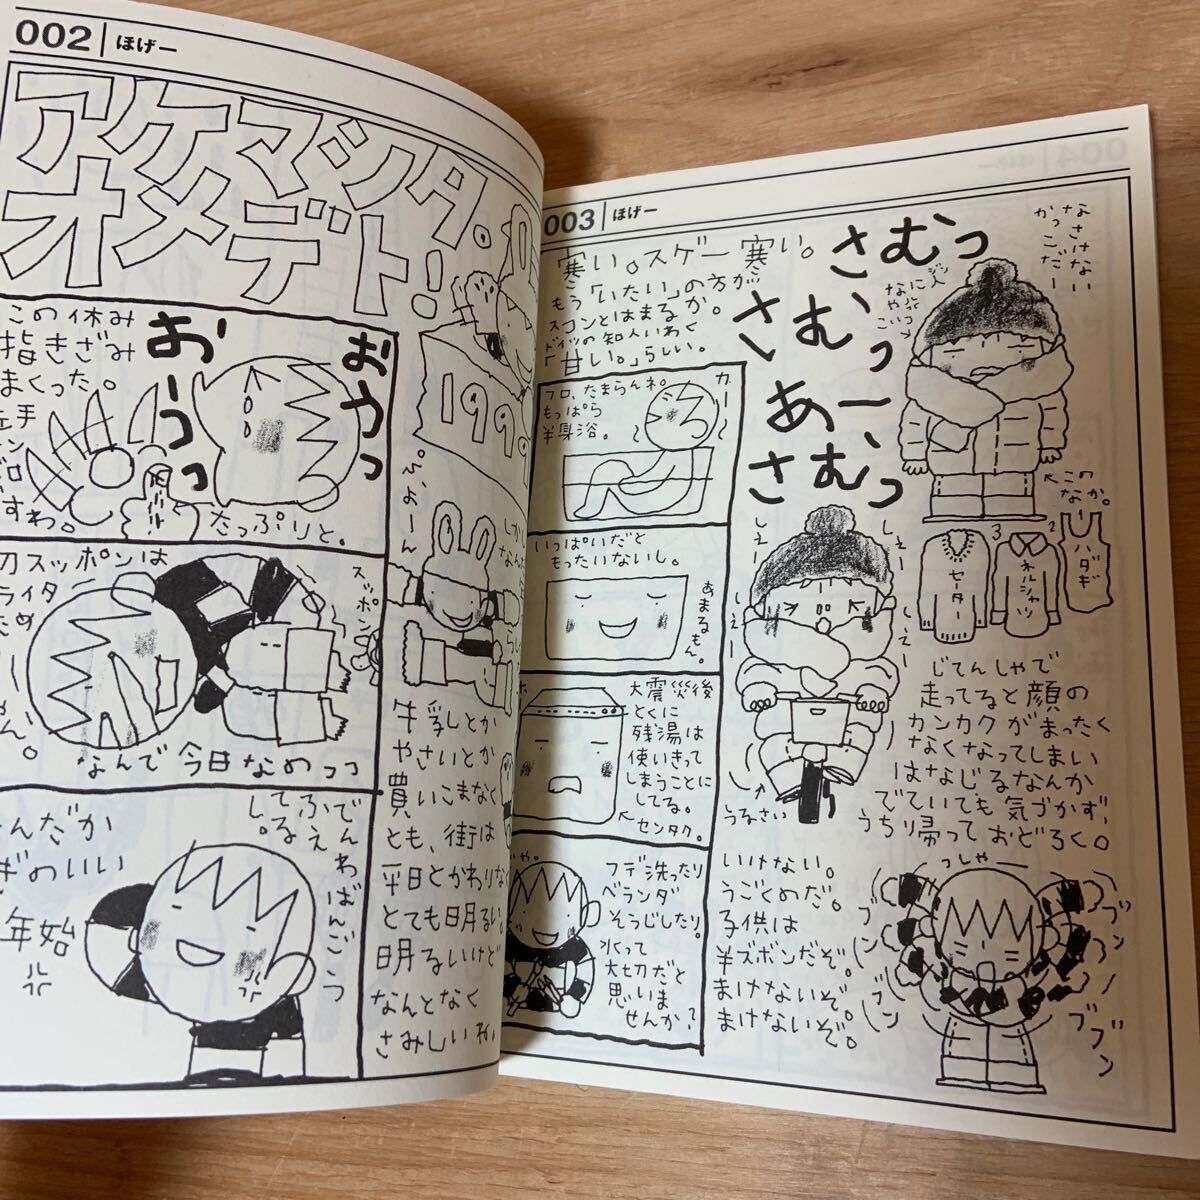 002 ほげー
アケマシタ。
オメデト!
この休み
指きざみ
まくった。
おーうっっ
おやっ
たっぷりと。
スッポンは
スッポン
なんで今日なめっっ
でんわばんごう
ふえ
てる。
年始
199
ぴょーん
牛乳しとか
やさいとか
買いこまなく
とも、街は
平日とかわりなく
とても明るい。
明るいけど
なんとなく
さみしいわ。
003 ほげー
寒い。スゲー寒い。
もう「いたい」の方が
スコンとはまるか。
ドイツの知人いわく
「甘い。」らしい。
さむっ
さ、むっ
あー、
さむっ
なさけない
かっこだー
フロ、たまらんネ。
もっぱら
半身浴。
カー
いっぱいだと
もったいないし。
あまるもん。
大震災後
とくに
残湯は
使いきって
しまうことに
してる。
←センタク。
フデ洗ったり
ベランダ
そうじしたり。
水って
大切だと
思いま
せんか?
←この
なか。
セーター
3
ネルシャツ
2
ハダギ
しぇー
しぇー
しぇー
しぇー
うるさい
じてんしゃで
走ってると顔の
カンカクがまったく
なくなってしまい
はなじるなんか
でていても気づかず、
うちり帰っておどろく。
いけない。
うごくのだ。
子供は
半ズボンだぞ。
まけないぞ。
まけないぞ。
っしゃー
ブン
ブン
ブン
ブブン